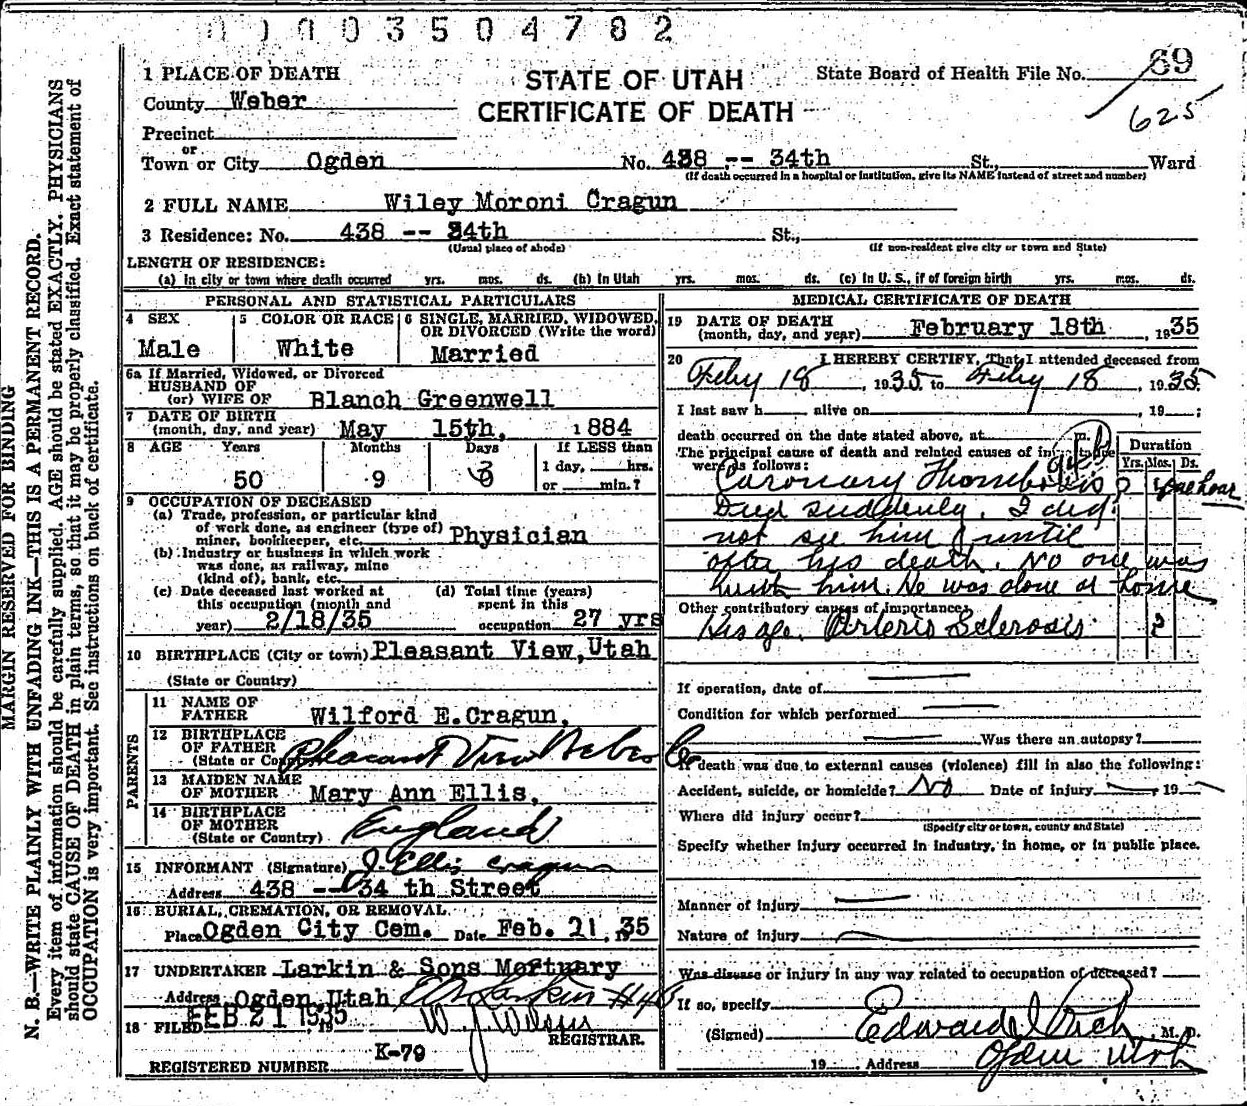 0 0 0 3 5 0 4 7 8 2
1 PLACE OF DEATH
STATE OF UTAH
CERTIFICATE OF DEATH
State Board of Health File No. 69
625
County Weber
Precinct
or
Town or City Ogden No. 438 -- 34th St., Ward
(If death occurred in a hospital or institution, give its NAME instead of street and number)
2 FULL NAME Wiley Moroni Cragun
3 Residence: No. 438 -- 34th St.,
(Usual place of abode) (If non-resident give city or town and State)
LENGTH OF RESIDENCE:
(a) In city or town where death occurred yrs. mos. ds. (b) In Utah yrs. mos. ds. (c) In U. S., if of foreign birth yrs. mos. ds.
PERSONAL AND STATISTICAL PARTICULARS
4 SEX Male
5 COLOR OR RACE White
6 SINGLE, MARRIED, WIDOWED, OR DIVORCED (Write the word) Married
6a If Married, Widowed, or Divorced
HUSBAND OF
(or) WIFE OF Blanch Greenwell
7 DATE OF BIRTH
(month, day, and year) May 15th, 1884
8 AGE Years Months Days If LESS than
50 9 3 1 day, hrs.
or min.?
9 OCCUPATION OF DECEASED
(a) Trade, profession, or particular kind
of work done, as engineer (type of)
miner, bookkeeper, etc. Physician
(b) Industry or business in which work
was done, as railway, mine
(kind of), bank, etc.
(c) Date deceased last worked at (d) Total time (years)
this occupation (month and spent in this
year) 2/18/35 occupation 27 yrs
10 BIRTHPLACE (City or town) Pleasant View, Utah
(State or Country)
PARENTS
11 NAME OF
FATHER Wilford E. Cragun,
12 BIRTHPLACE
OF FATHER
(State or Country) Pleasant View Weber Co
13 MAIDEN NAME
OF MOTHER Mary Ann Ellis,
14 BIRTHPLACE
OF MOTHER
(State or Country) England
15 INFORMANT (Signature) J. Ellis Cragun
Address 438 -- 34 th Street
16 BURIAL, CREMATION, OR REMOVAL
Place Ogden City Cem. Date Feb. 21, 1935
17 UNDERTAKER Larkin & Sons Mortuary
Address Ogden, Utah
18 FILED FEB 21 1935 19
W J Wilson
REGISTRAR.
K-79
REGISTERED NUMBER
MEDICAL CERTIFICATE OF DEATH
19 DATE OF DEATH
(month, day, and year) February 18th, 1935
20 I HEREBY CERTIFY, That I attended deceased from
Feby 18, 1935 to Feby 18, 1935.
I last saw h alive on , 19 ;
death occurred on the date stated above, at m.
The principal cause of death and related causes of importance
were as follows:
Duration
Yrs. Mos. Ds.
Coronary Thombosis ? one hour
Died suddenly. I did
not see him until
after his death. No one was
with him. He was alone at home
Other contributory causes of importance:
His age. Arterio Sclerosis ?
If operation, date of
Condition for which performed
Was there an autopsy?
If death was due to external causes (violence) fill in also the following:
Accident, suicide, or homicide? No Date of injury , 19
Where did injury occur?
(Specify city or town, county and State)
Specify whether injury occurred in industry, in home, or in public place.
Manner of injury
Nature of injury
Was disease or injury in any way related to occupation of deceased?
If so, specify
(Signed) Edward I Rich M. D.
19 Address Ogden Utah
MARGIN RESERVED FOR BINDING
N. B.—WRITE PLAINLY WITH UNFADING INK—THIS IS A PERMANENT RECORD.
Every item of information should be carefully supplied. AGE should be stated EXACTLY. PHYSICIANS
should state CAUSE OF DEATH in plain terms, so that it may be properly classified. Exact statement of
OCCUPATION is very important. See instructions on back of certificate.